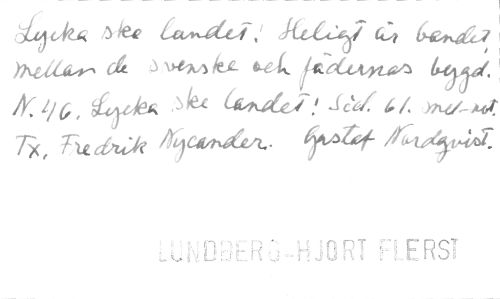 Lycka ske landet! Heligt är bandet
mellan de svenske och fädernas bygd.
N. 46. Lycka ske landet! Sid. 61. mel-not.
Tx. Fredrik Nycander. Gustaf Nordqvist.
LUNDBERG-HJORT FLERST